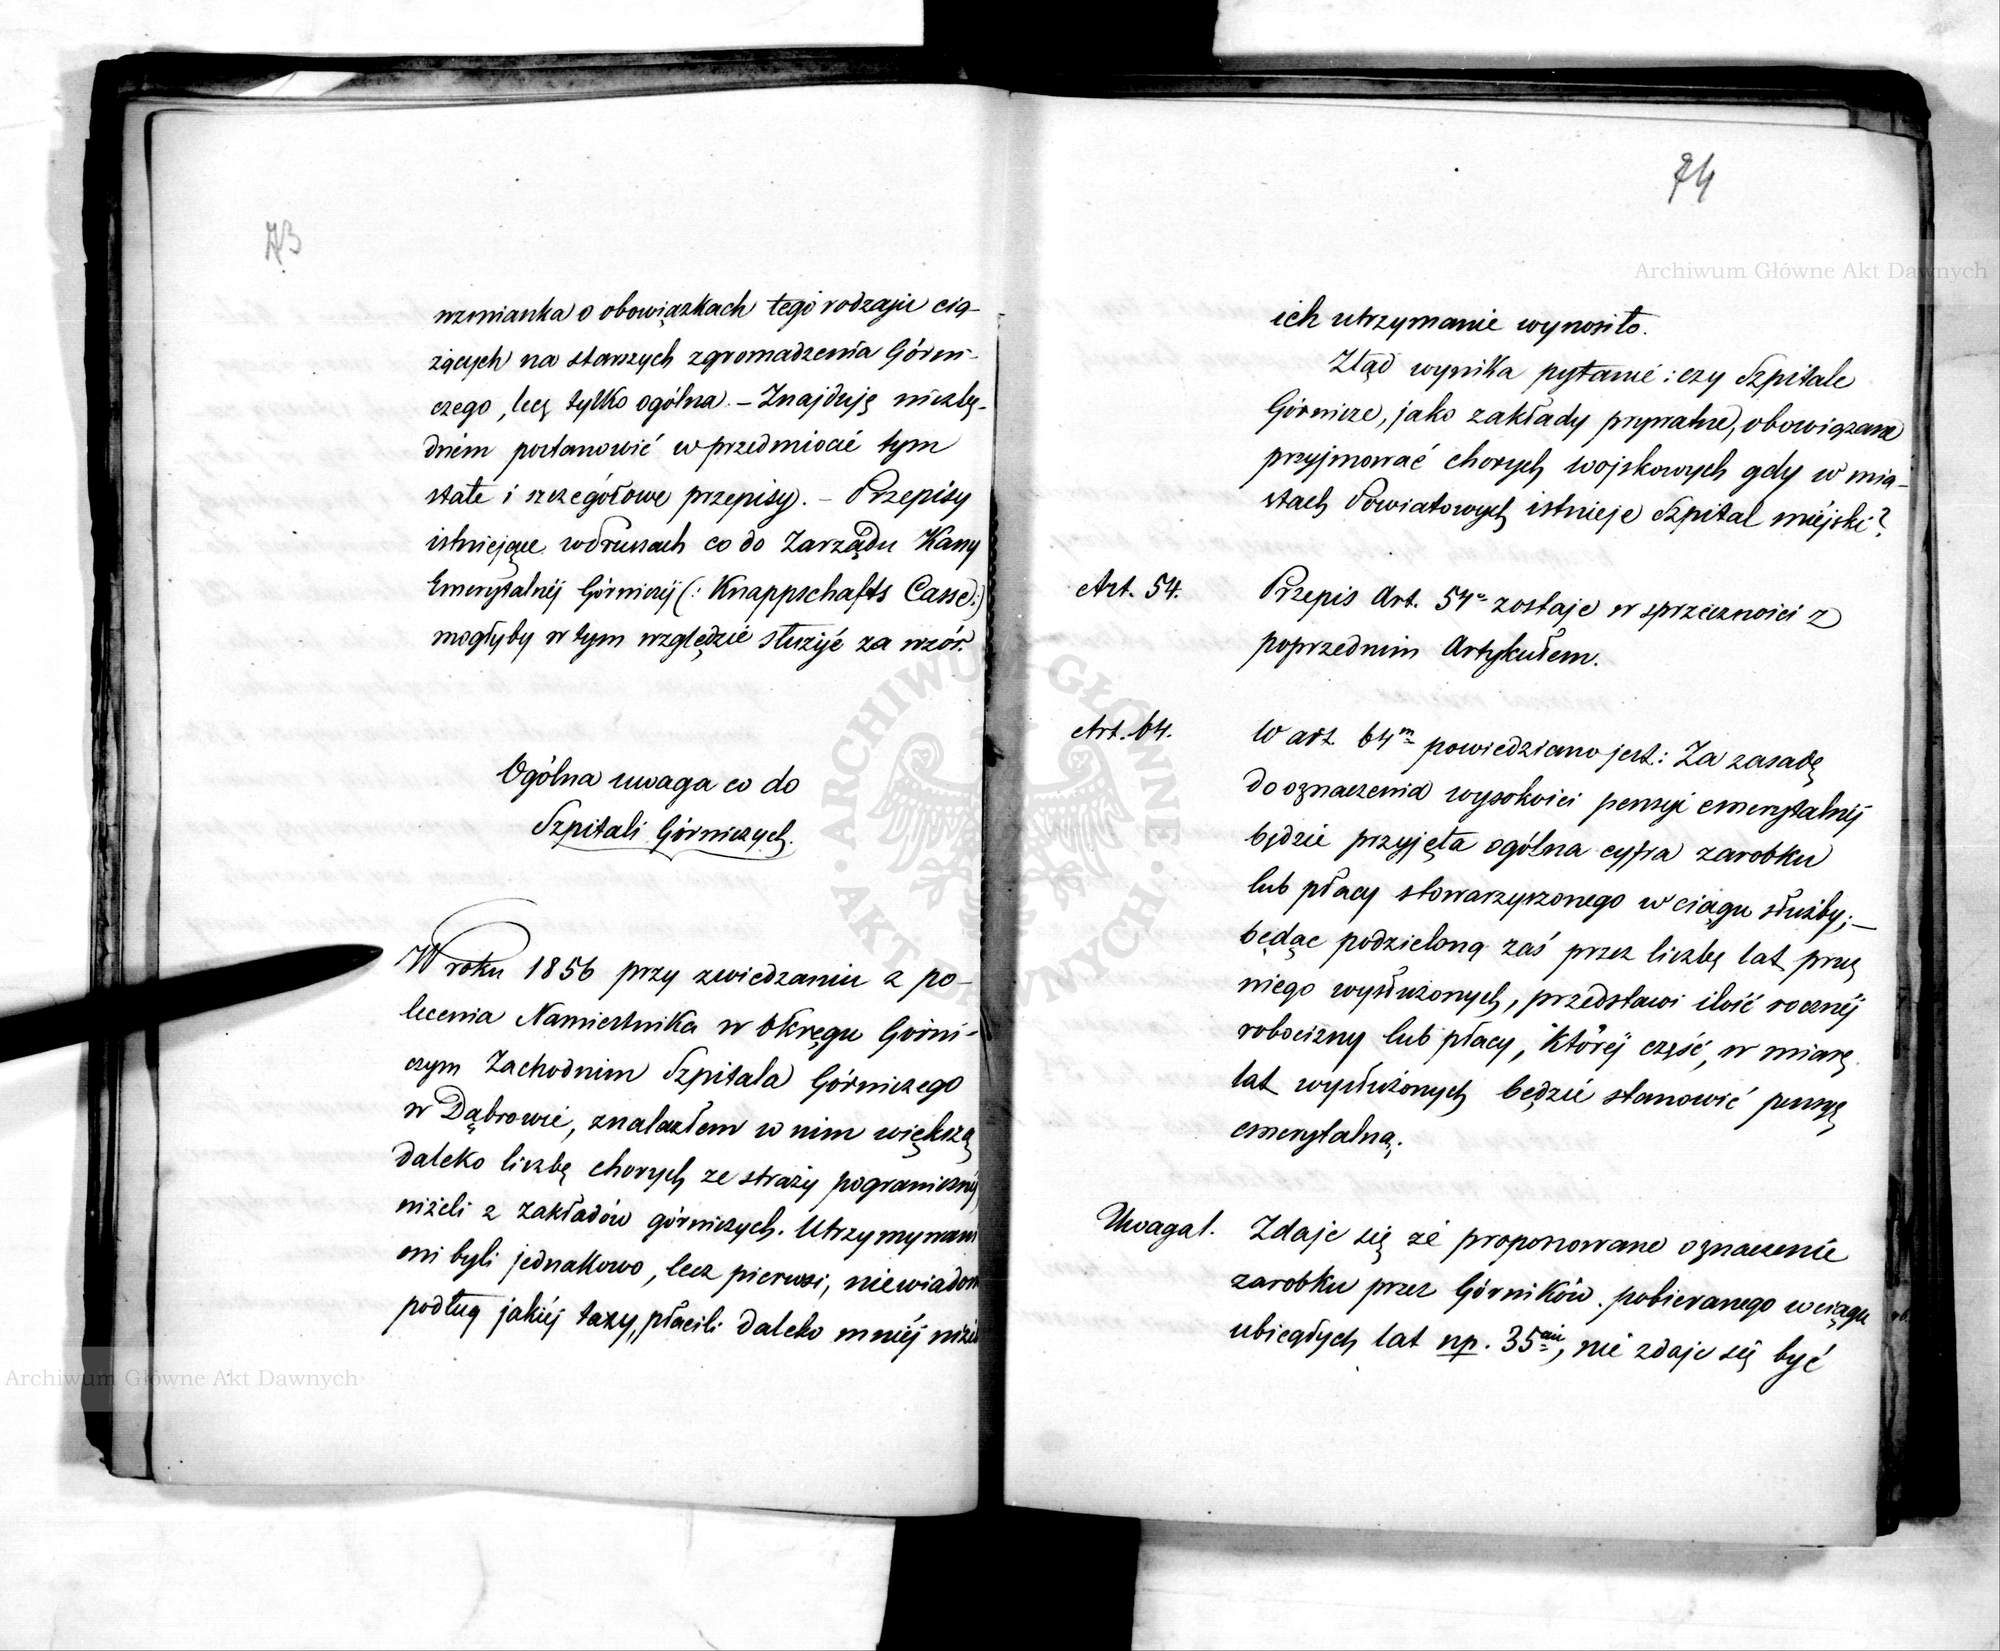 73
wzmianka o obowiązkach tego rodzaju cią-
żących na starszych zgromadzenia Górni-
czego, lecz tylko ogólna. – Znajduję niezbę-
dném postanowić w przedmiocie tym
stałe i szczegółowe przepisy. – Przepisy
istniejące w Prusach co do Zarządu Kassy
Emerytalnéj Górniczéj (: Knappschafts Casse :)
mogłyby w tym względzie służyć za wzór.
Ogólna uwaga co do
Szpitali Górniczych.
W roku 1856 przy zwiedzaniu z po-
lecenia Namiestnika w Okręgu Górni-
czym Zachodnim Szpitala Górniczego
w Dąbrowie, znalazłem w nim większą
daleko liczbę chorych ze straży pogranicznéj
niżeli z zakładów górniczych. Utrzymywani
oni byli jednakowo, lecz pierwsi, niewiadomo
podług jakiéj taxy, płacili daleko mniéj niżeli
74
ich utrzymanie wynosiło.
Ztąd wynika pytanie: czy Szpitale
Górnicze, jako zakłady prywatne, obowiązane
przyjmować chorych wojskowych gdy w mia-
stach Powiatowych istnieje Szpital miéjski?
Art. 54. Przepis Art. 54º zostaje w sprzeczności z
poprzednim Artykułem.
Art. 64. W art. 64m powiedziano jest: Za zasadę
do oznaczenia wysokości pensyi emerytalnéj
będzie przyjęta ogólna cyfra zarobku
lub płacy stowarzyszonego w ciągu służby; –
będąc podzieloną zaś przez liczbę lat przez
niego wysłużonych, przedstawi ilość rocznéj
robocizny lub płacy, któréj część, w miarę
lat wysłużonych będzie stanowić pensyę
emerytalną.
Uwaga 1. Zdaje się że proponowane oznaczenie
zarobku przez Górników pobieranego w ciągu
ubiegłych lat np. 35ciu, nie zdaje się być
Archiwum Główne Akt Dawnych
Archiwum Główne Akt Dawnych
ARCHIWUM GŁÓWNE · AKT DAWNYCH ·